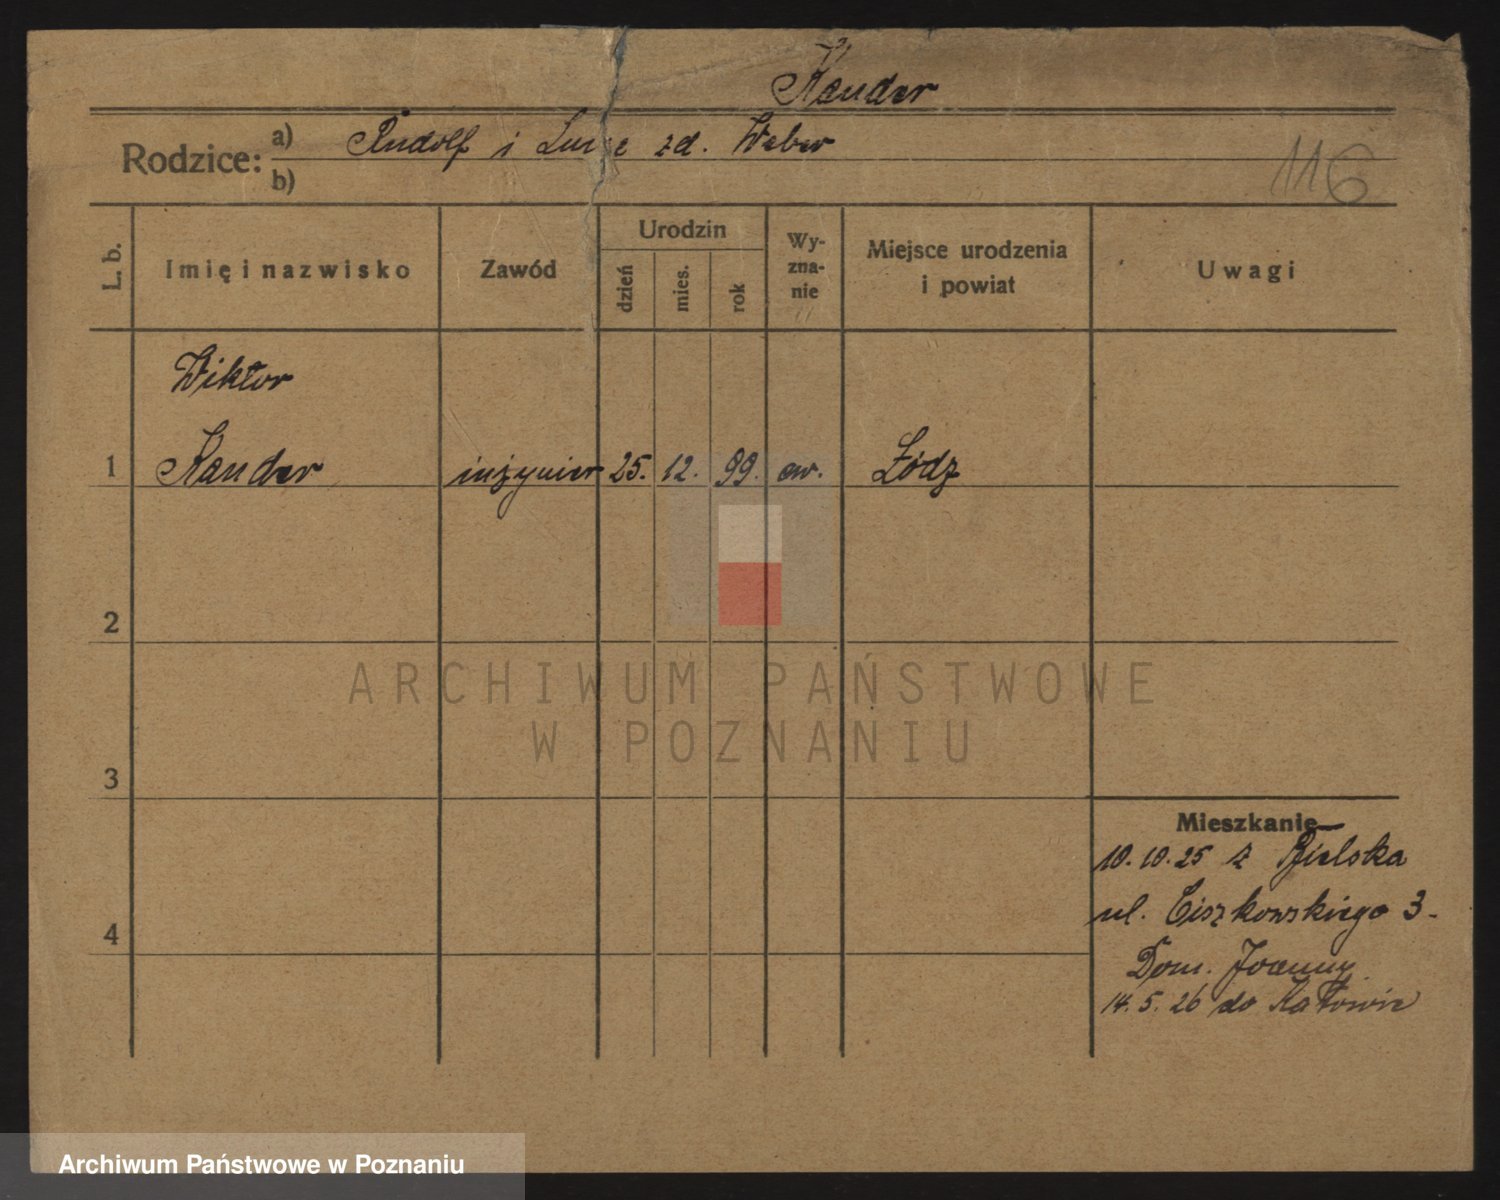 Kander
Rodzice: a) Rudolf i zd. Weber
b)
116
L. b.
Imię i nazwisko
Zawód
Urodzin
dzień
mies.
rok
Wy-
zna-
nie
Miejsce urodzenia
i powiat
Uwagi
Wiktor
1 Kander inżynier 25. 12. 99. ew. Łódź
2
3
4
Mieszkanie
10.10.25 z Bielska
ul. Ciszkowskiego 3-
Dom. Joanny
14.5.26 do Katowic
ARCHIWUM PAŃSTWOWE
W POZNANIU
Archiwum Państwowe w Poznaniu